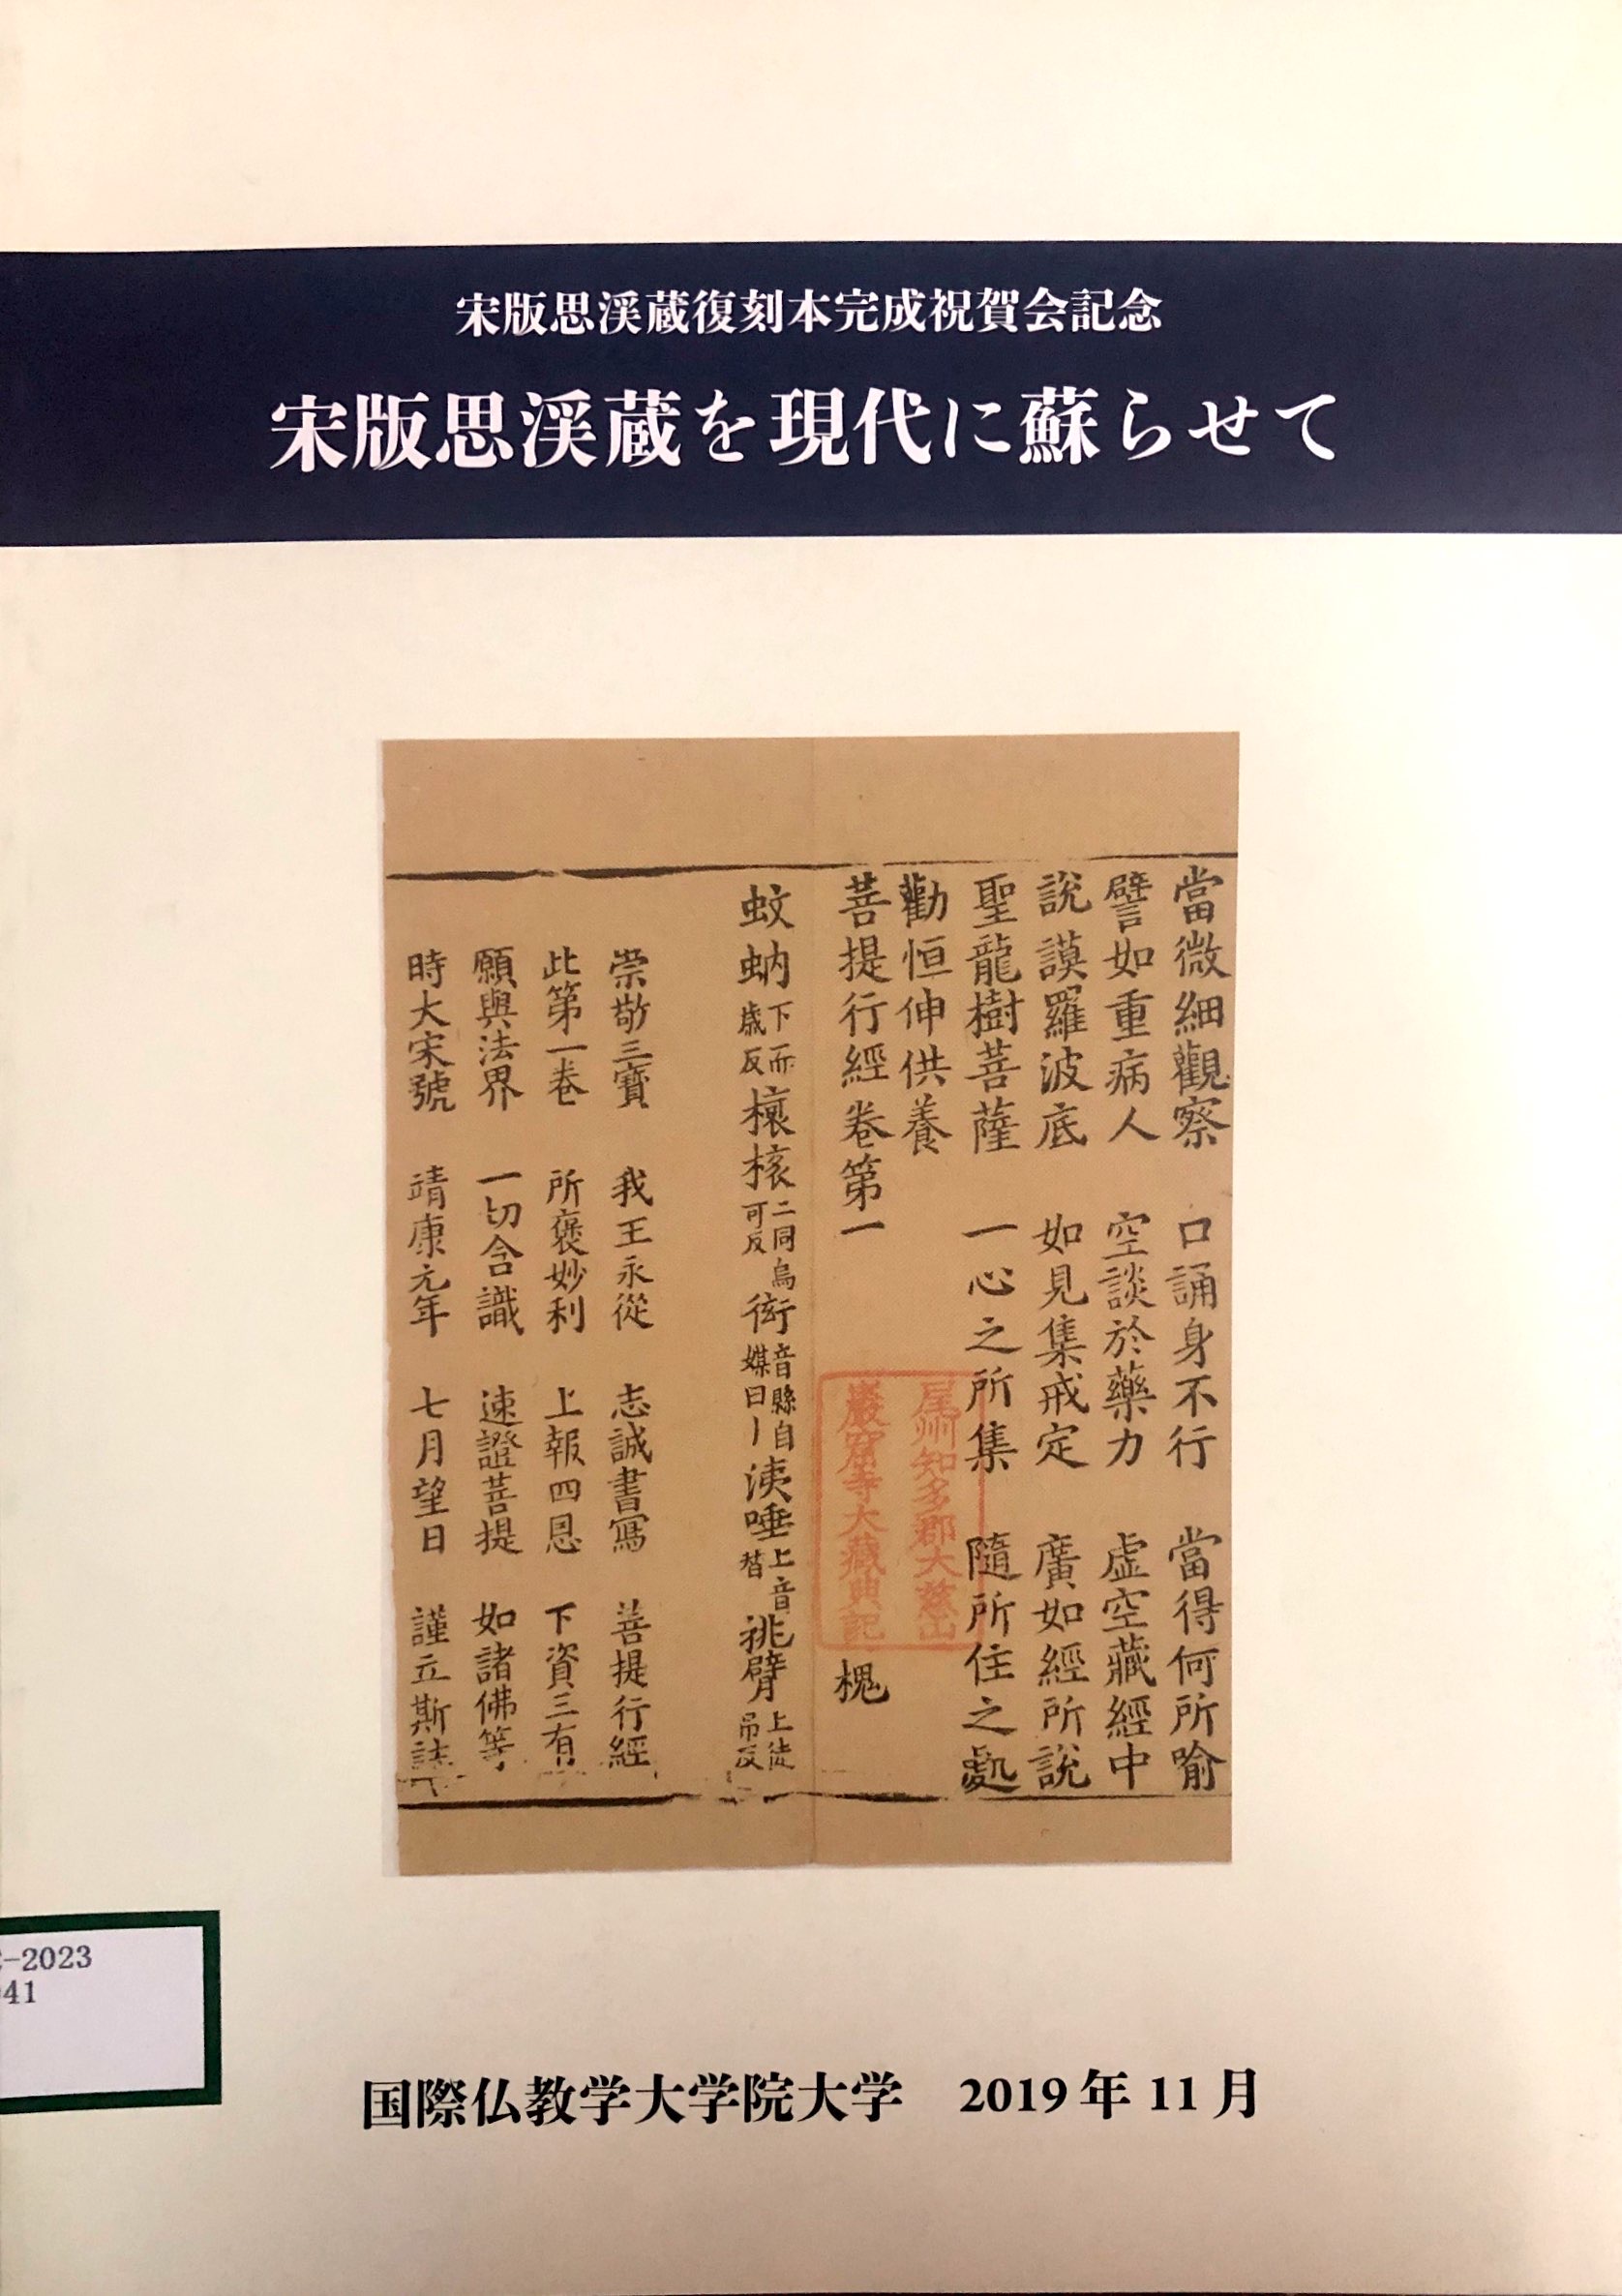 宋版思渓蔵復刻本完成祝賀会記念
宋版思渓蔵を現代に蘇らせて
當微細觀察 口誦身不行 當得何所喻
譬如重病人 空談於藥力 虛空藏經中
說謨羅波底 如見集戒定 廣如經所說
聖龍樹菩薩 一心之所集 隨所住之處
勸恒伸供養
菩提行經卷第一 槐
尾州知多郡大慈山
巖窟寺大藏典記
蚊蚋 下而歲反 榱 二同烏可反 衒 音縣自媒曰 洟唾 上音替 挑臂 上徒吊反
崇敬三寶 我王永從 志誠書寫 菩提行經
此第一卷 所褒妙利 上報四恩 下資三有
願與法界 一切含識 速證菩提 如諸佛等
時大宋號 靖康元年 七月望日 謹立斯誌
-2023
41
国際仏教学大学院大学 2019年11月